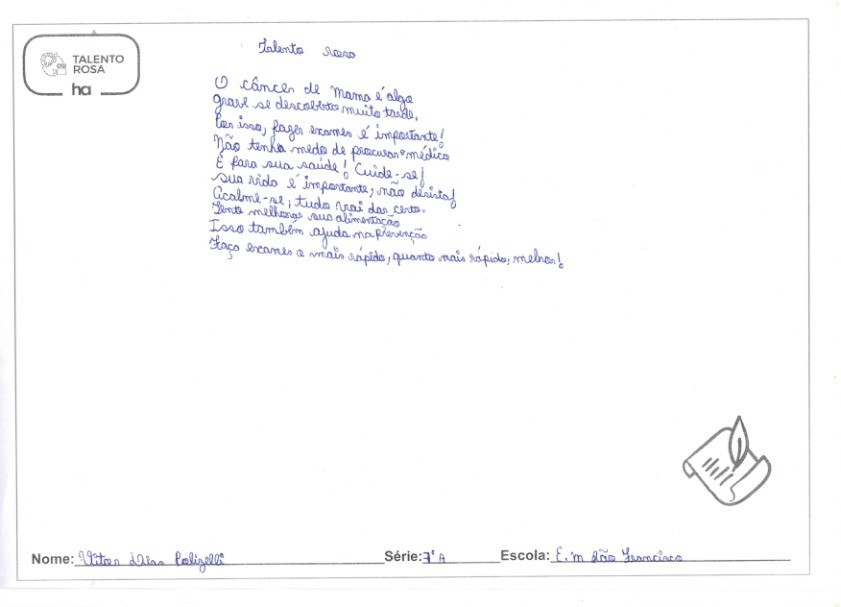 TALENTO
ROSA
ha
Talento Rosa
O câncer de Mama é algo
grave se descoberto muito tarde,
Por isso, fazer exames é importante!
Não tenha medo de procurar o médico
É para sua saúde! Cuide-se!
sua vida é importante, não desista!
Acalme-se, tudo vai dar certo.
Tente melhorar sua alimentação
Isso também ajuda na prevenção
Faça exames o mais rápido, quanto mais rápido, melhor!
Nome: Vitor Polizelli Série: 7º A Escola: E.m São Francisco